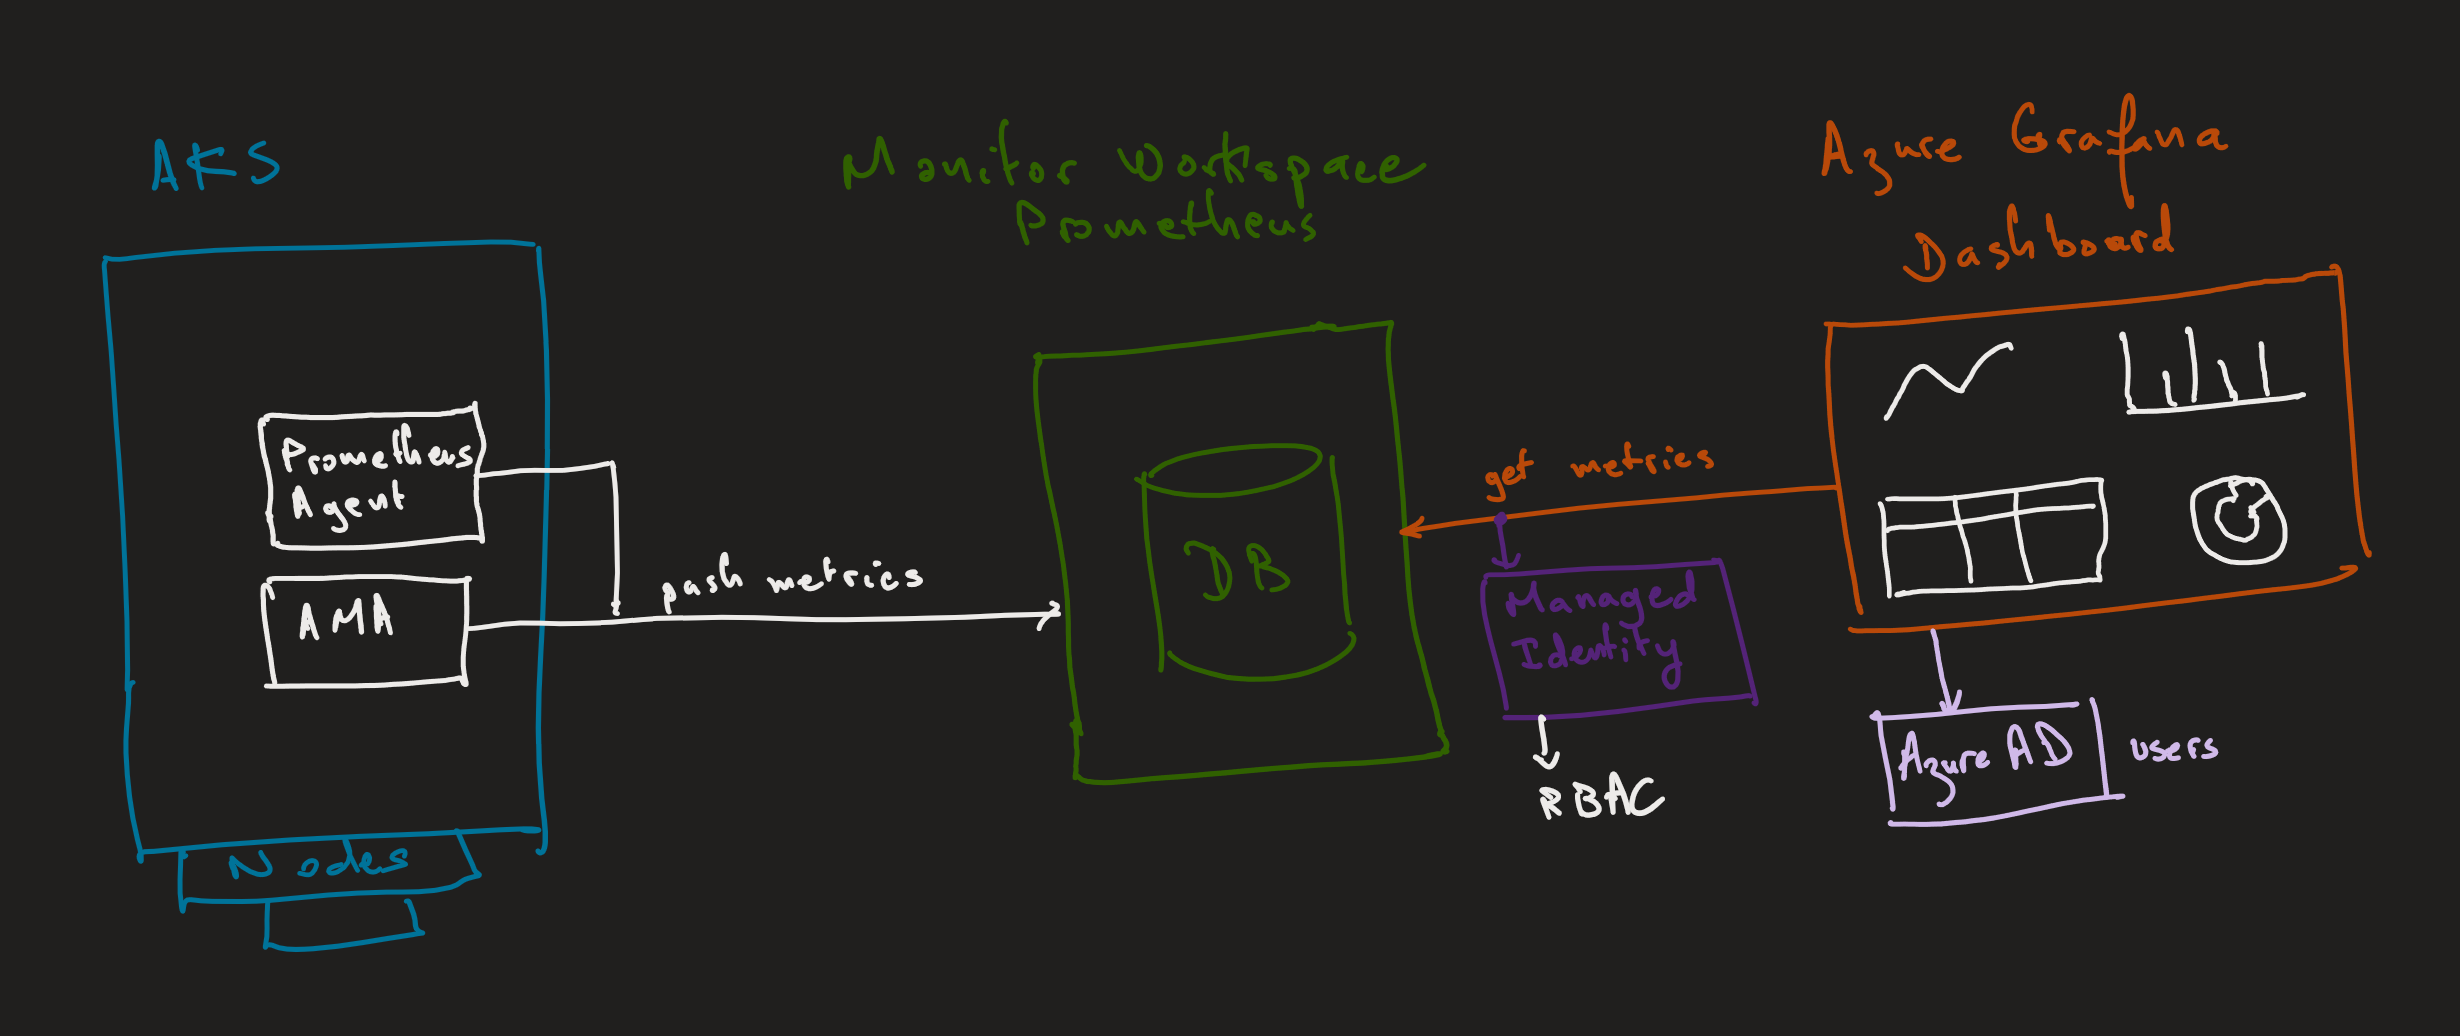 AKS
Prometheus
Agent
AMA
Nodes
push metrics
Monitor Workspace
Prometheus
DB
get metrics
Managed
Identity
RBAC
Azure Grafana
Dashboard
Azure AD
users